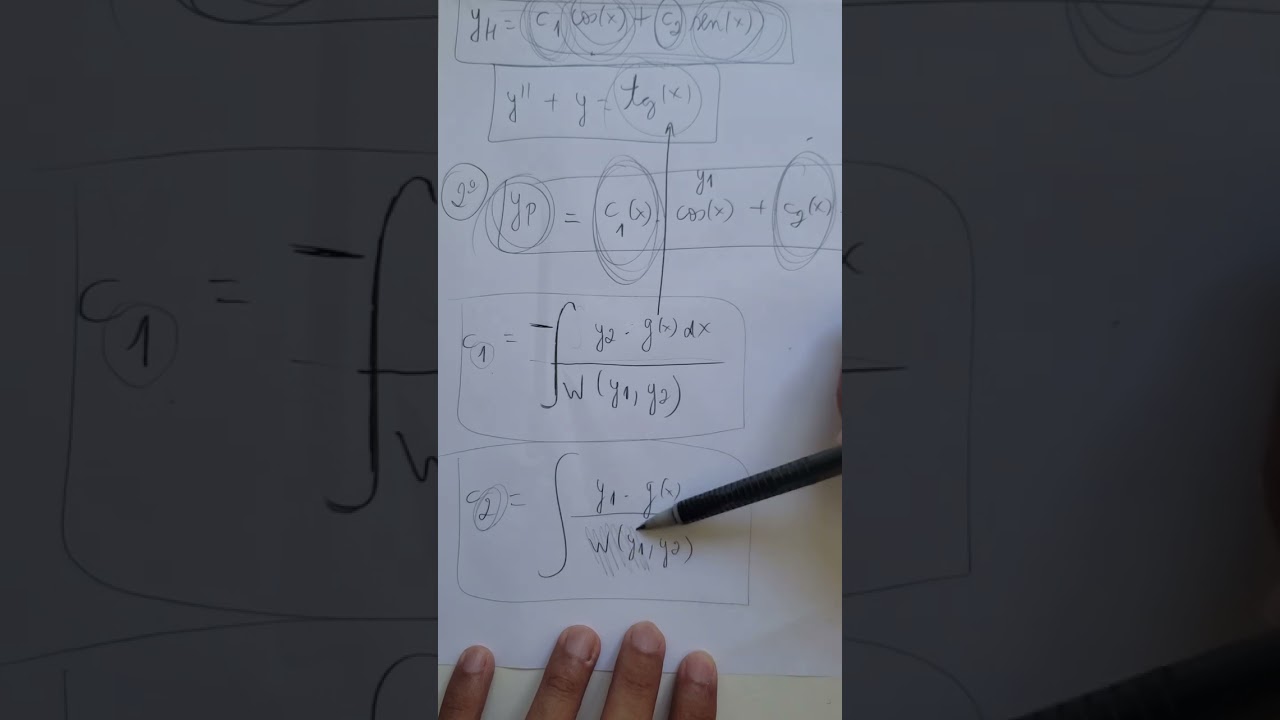 yH = c1 cos(x) + c2 sen(x)
y'' + y = tg(x)
2º yp = c1(x) . cos(x) + c2(x) .
y1
c1 = -∫ y2 . g(x) dx / W(y1, y2)
c2 = ∫ y1 . g(x) / W(y1, y2)